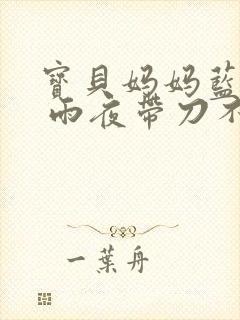 寶貝媽媽藍
雨夜帶刀不
一葉舟